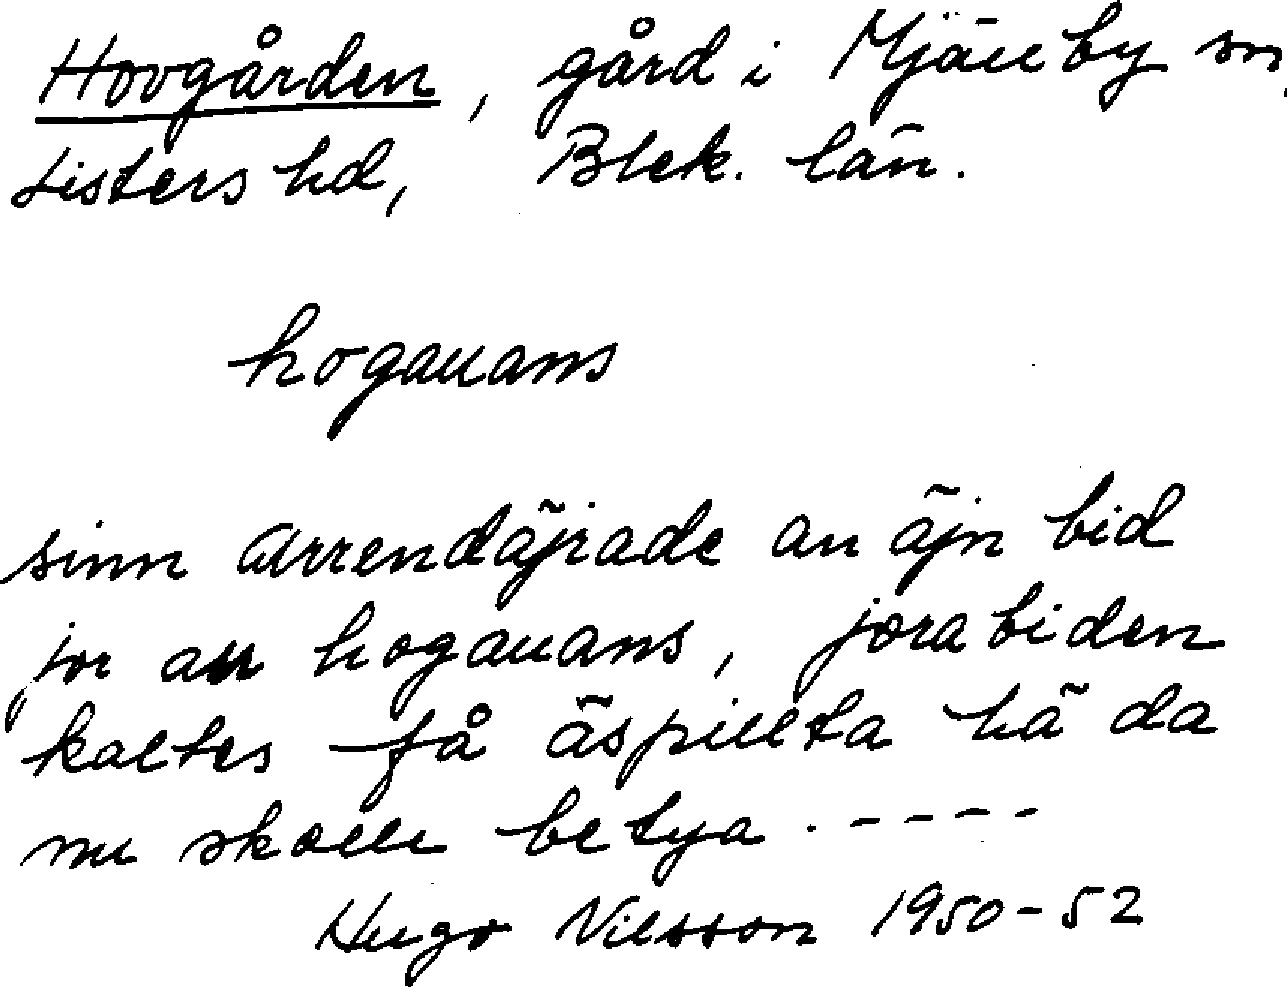 Hovgården, gård i Mjällby sn,
Listers hd, Blek. län.
hogauans
sinn arrendäjrade au äjn bid
jor au hogauans, jorabiden
kaltes få äspillta hä da
nu skolle betya . - - - - -
Hugo Nilsson 1950-52